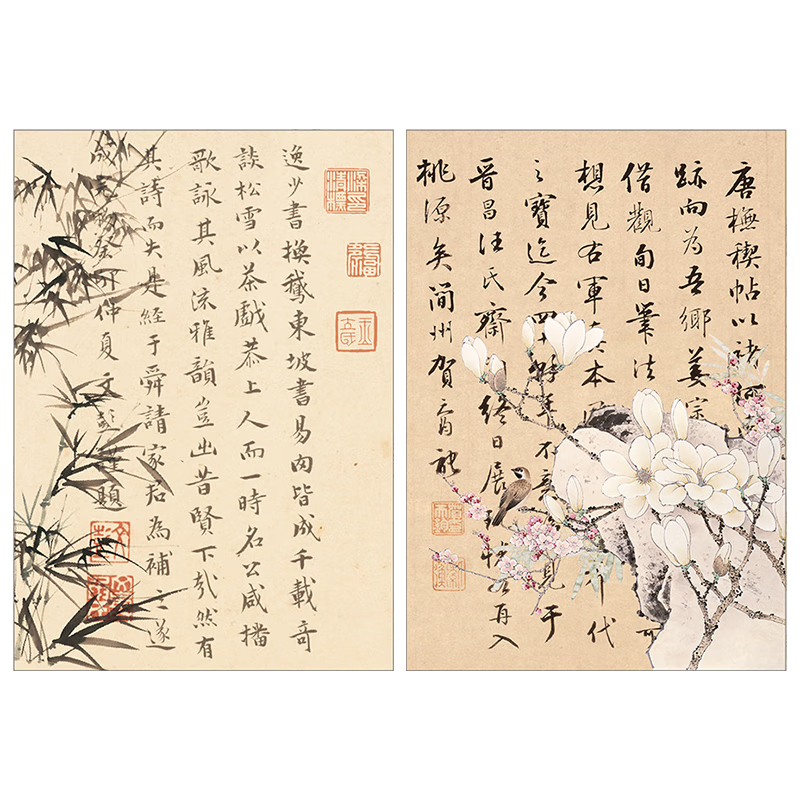 逸少書換鵝東坡書易肉皆成千載奇
談松雪以茶戲恭上人而一時名公咸播
歌詠其風流雅韻豈出昔賢下哉然有
其詩而失是經于舜請家君為補之遂
成完物癸卯仲夏文彭謹題
唐橅稧帖以褚河
跡向為吾鄉姜宗 可
借觀旬日筆法
想見右軍真本 年代
之寶迄今四十餘年不意 見于
晉昌汪氏齋 終日展 再入
桃源矣 州賀